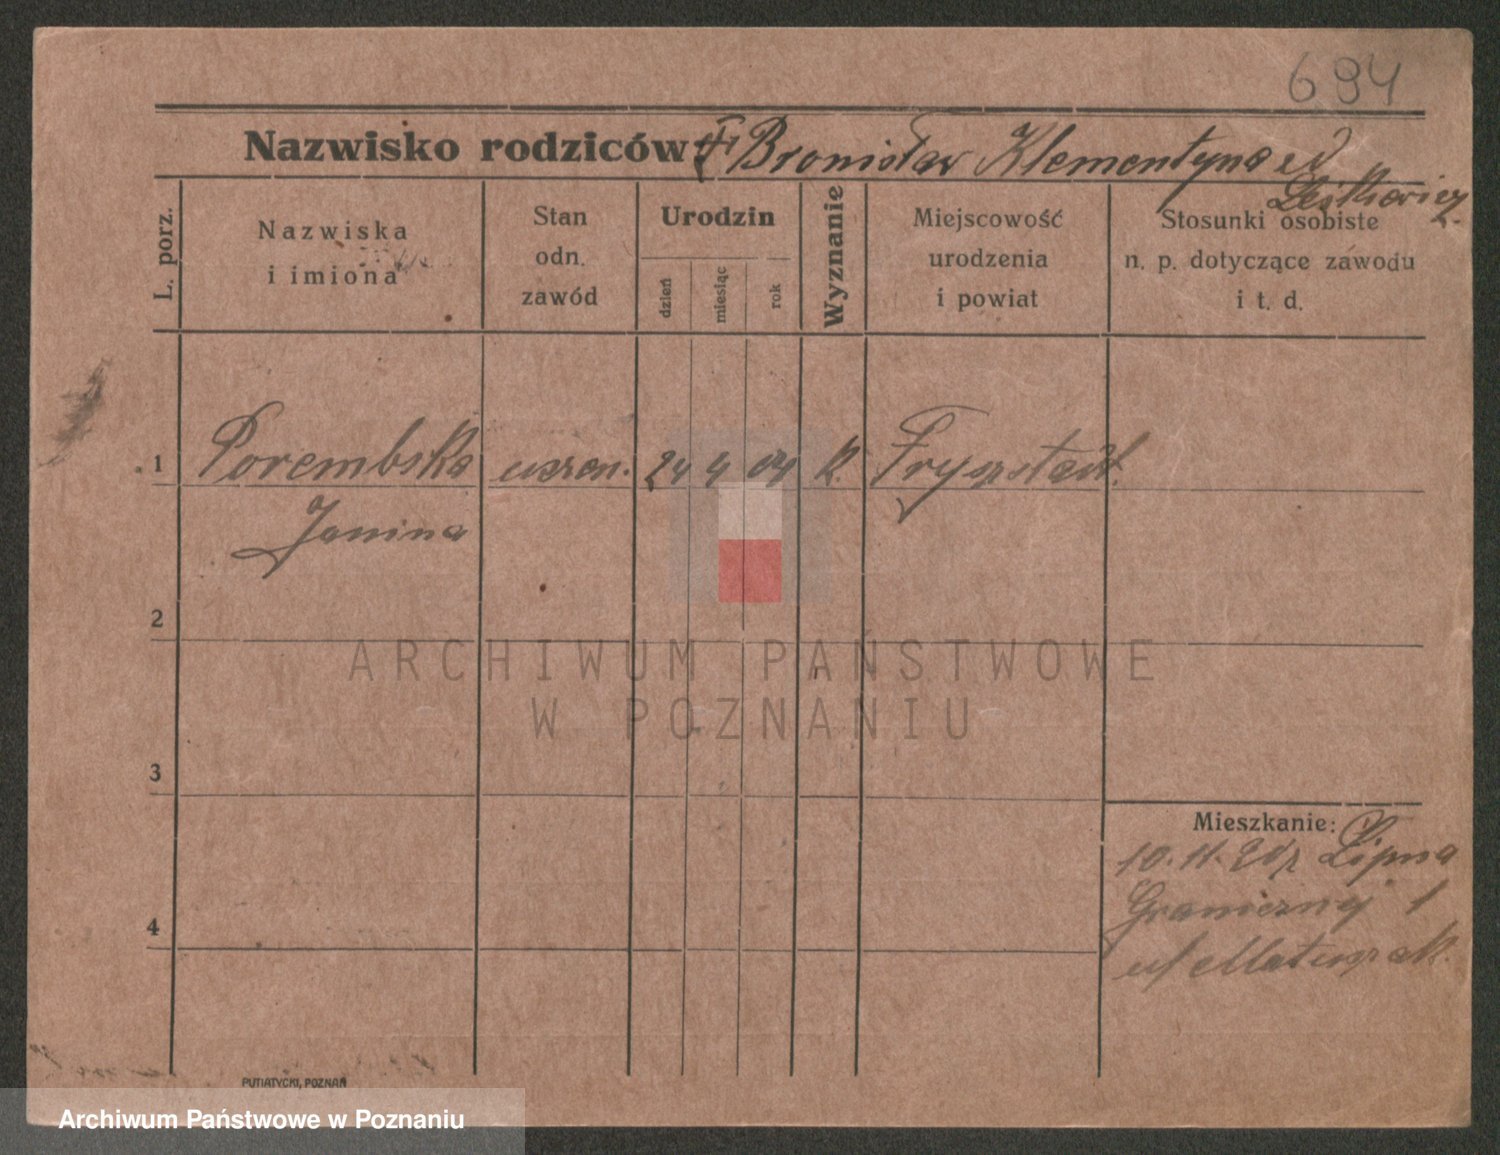 694
Nazwisko rodziców: Bronisław Klementyna
Leśkiewicz
L. porz.
Nazwiska
i imiona
Stan
odn.
zawód
Urodzin
dzień
miesiąc
rok
Wyznanie
Miejscowość
urodzenia
i powiat
Stosunki osobiste
n. p. dotyczące zawodu
i t. d.
1 Porembska uczen. 24 4 04 k. Frysztadt.
Janina
2
ARCHIWUM PAŃSTWOWE
W POZNANIU
3
Mieszkanie:
10. 11. 20 z Lipna
Granicznej 1
u/ Matczak.
4
PUTIATYCKI, POZNAŃ
Archiwum Państwowe w Poznaniu